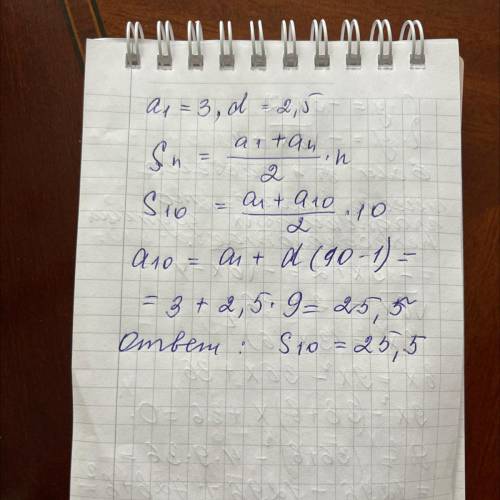 a1 = 3, d = 2,5
Sn = (a1 + an)/2 · n
S10 = (a1 + a10)/2 · 10
a10 = a1 + d (10 - 1) =
= 3 + 2,5 · 9 = 25,5
Ответ : S10 = 25,5